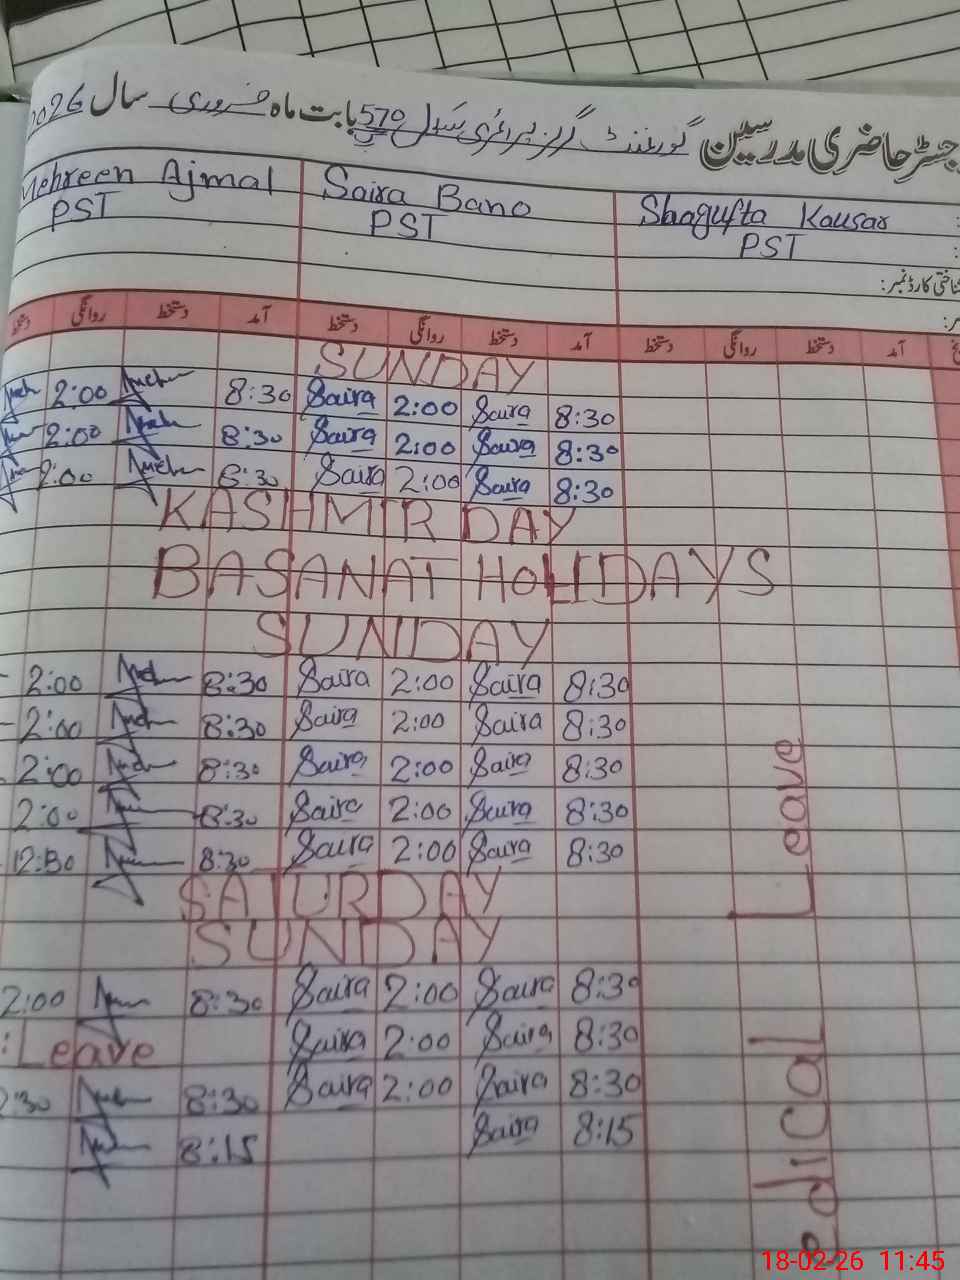 رجسٹر حاضری مدرسین گورنمنٹ گرلز پرائمری سکول 570 بابت ماہ فروری سال 2026
Mehreen Ajmal Saira Bano Shagufta Kausar
PST PST PST
شناختی کارڈ نمبر:
روانگی دستخط آمد دستخط روانگی دستخط آمد دستخط روانگی دستخط آمد
SUNDAY
2:00 8:30 Saira 2:00 Saira 8:30
2:00 8:30 Saira 2:00 Saira 8:30
2:00 8:30 Saira 2:00 Saira 8:30
KASHMIR DAY
BASANAT HOLIDAYS
SUNDAY
2:00 8:30 Saira 2:00 Saira 8:30
2:00 8:30 Saira 2:00 Saira 8:30
2:00 8:30 Saira 2:00 Saira 8:30
2:00 8:30 Saira 2:00 Saira 8:30
12:30 8:30 Saira 2:00 Saira 8:30
SATURDAY
SUNDAY
2:00 8:30 Saira 2:00 Saira 8:30
Leave Saira 2:00 Saira 8:30
2:30 8:30 Saira 2:00 Saira 8:30
8:15 Saira 8:15
edical Leave
18-02-26 11:45